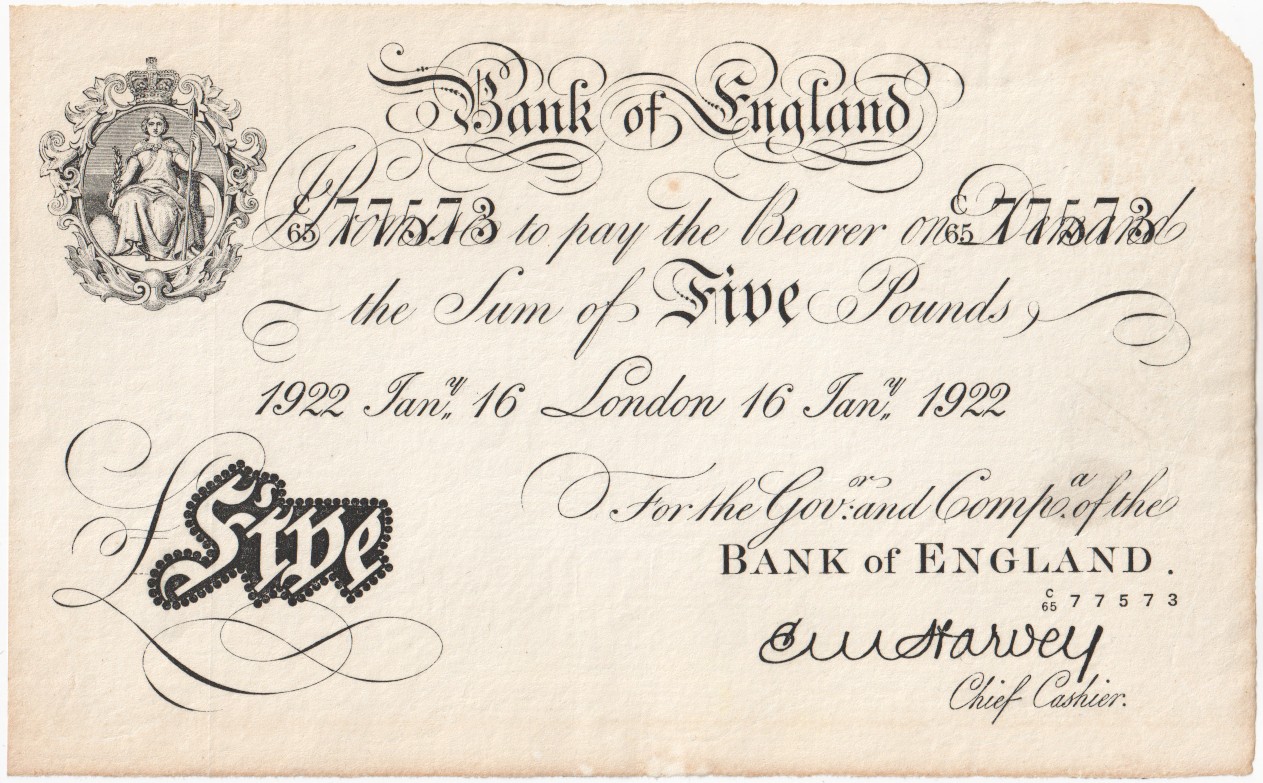 Bank of England
C/65 77573 I Promise to pay the Bearer on Demand C/65 77573
the Sum of Five Pounds,
1922 Jany 16 London 16 Jany 1922
For the Govor: and Compa. of the
BANK of ENGLAND.
C/65 77573
£Five
E M Harvey
Chief Cashier.